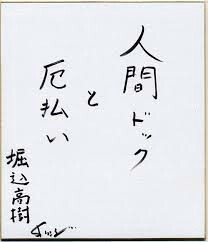 人間ドック
と
厄払い
堀込高樹